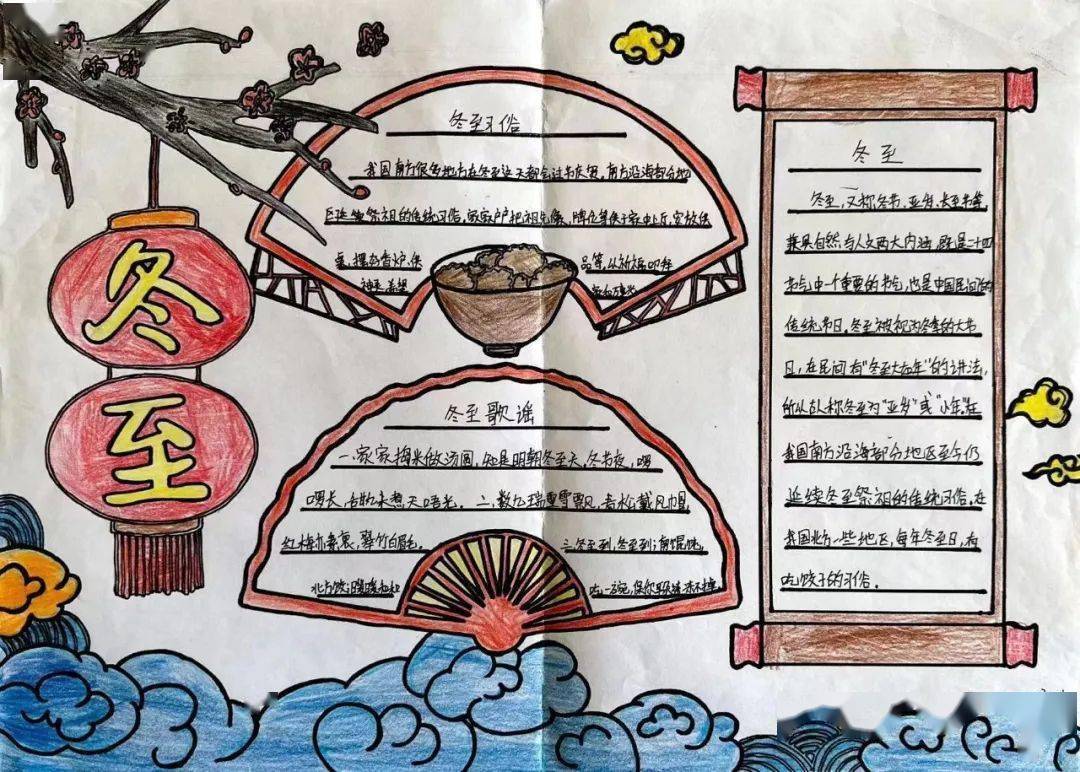 冬
至
冬至习俗
我国南方很多地方在冬至这天都会过节庆贺，南方沿海部分地
区延续祭祖的传统习俗，家家户户把祖先像、牌位等供于家中上厅，安放供
桌，摆好香炉、供
品等，以祈福
神
冬至歌谣
一、家家捣米做汤圆，知是明朝冬至天，冬节夜，啰
啰长，
二、数九瑞
戴风帽
红梅
翠竹白眉毛
三、冬至到，冬至到
馄饨
北方饺
吃一碗，保你
冬至
冬至，又称冬节、亚岁、长至节等，
兼具自然与人文两大内涵，既是二十四
节气中一个重要的节气，也是中国民间的
传统节日，冬至被视为冬季的大节
日，在民间有"冬至大如年"的讲法，
所以古人称冬至为"亚岁"或"小年"。在
我国南方沿海部分地区至今仍
延续冬至祭祖的传统习俗，在
我国北方一些地区，每年冬至日，有
吃饺子的习俗．